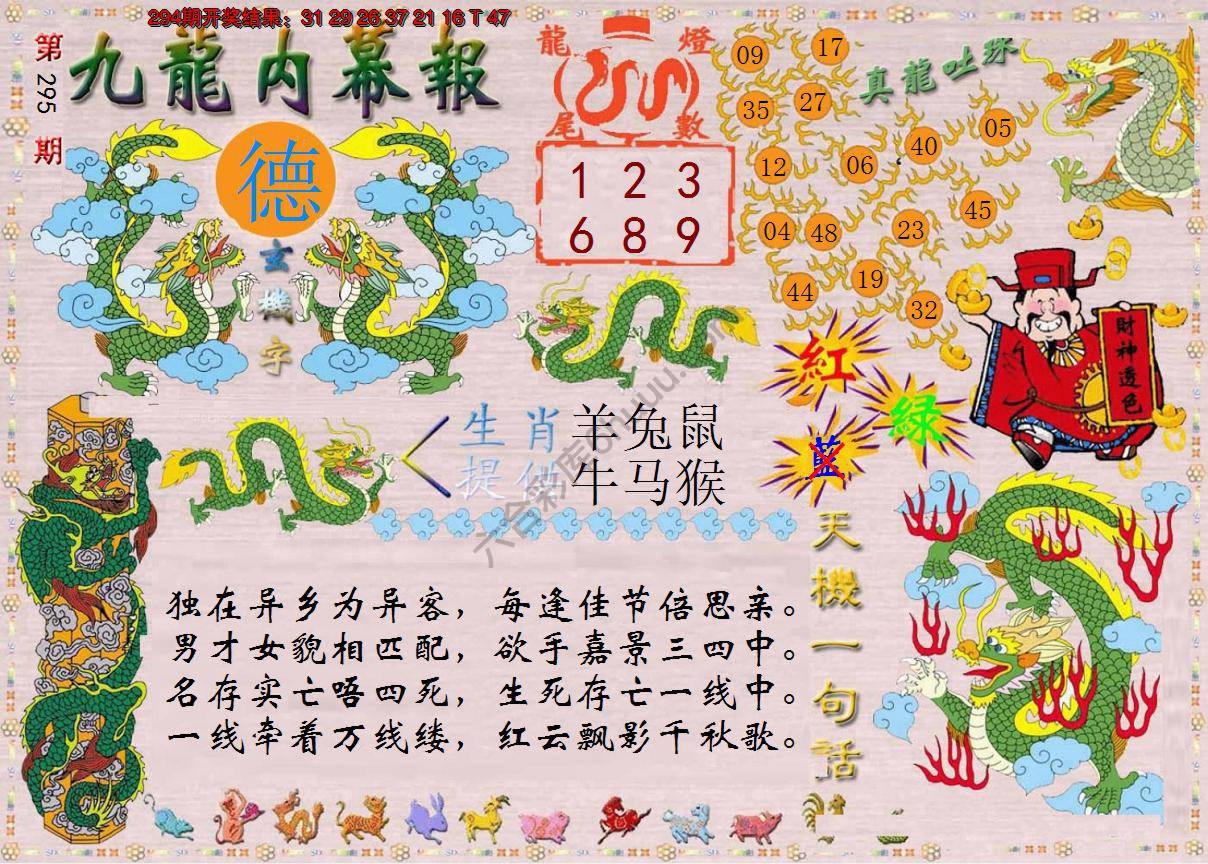 294期开奖结果：31 29 26 37 21 16 T 47
第295期
九龍内幕報
德
玄機字
龍燈
尾數
1 2 3
6 8 9
真龍吐珠
09 17
35 27
40 05
12 06
45
04 48 23
19
44 32
財神透色
紅
綠
藍
生肖 羊兔鼠
提供 牛马猴
天機一句話
独在异乡为异客，每逢佳节倍思亲。
男才女貌相匹配，欲手嘉景三四中。
名存实亡唔四死，生死存亡一线中。
一线牵着万线缕，红云飘影千秋歌。